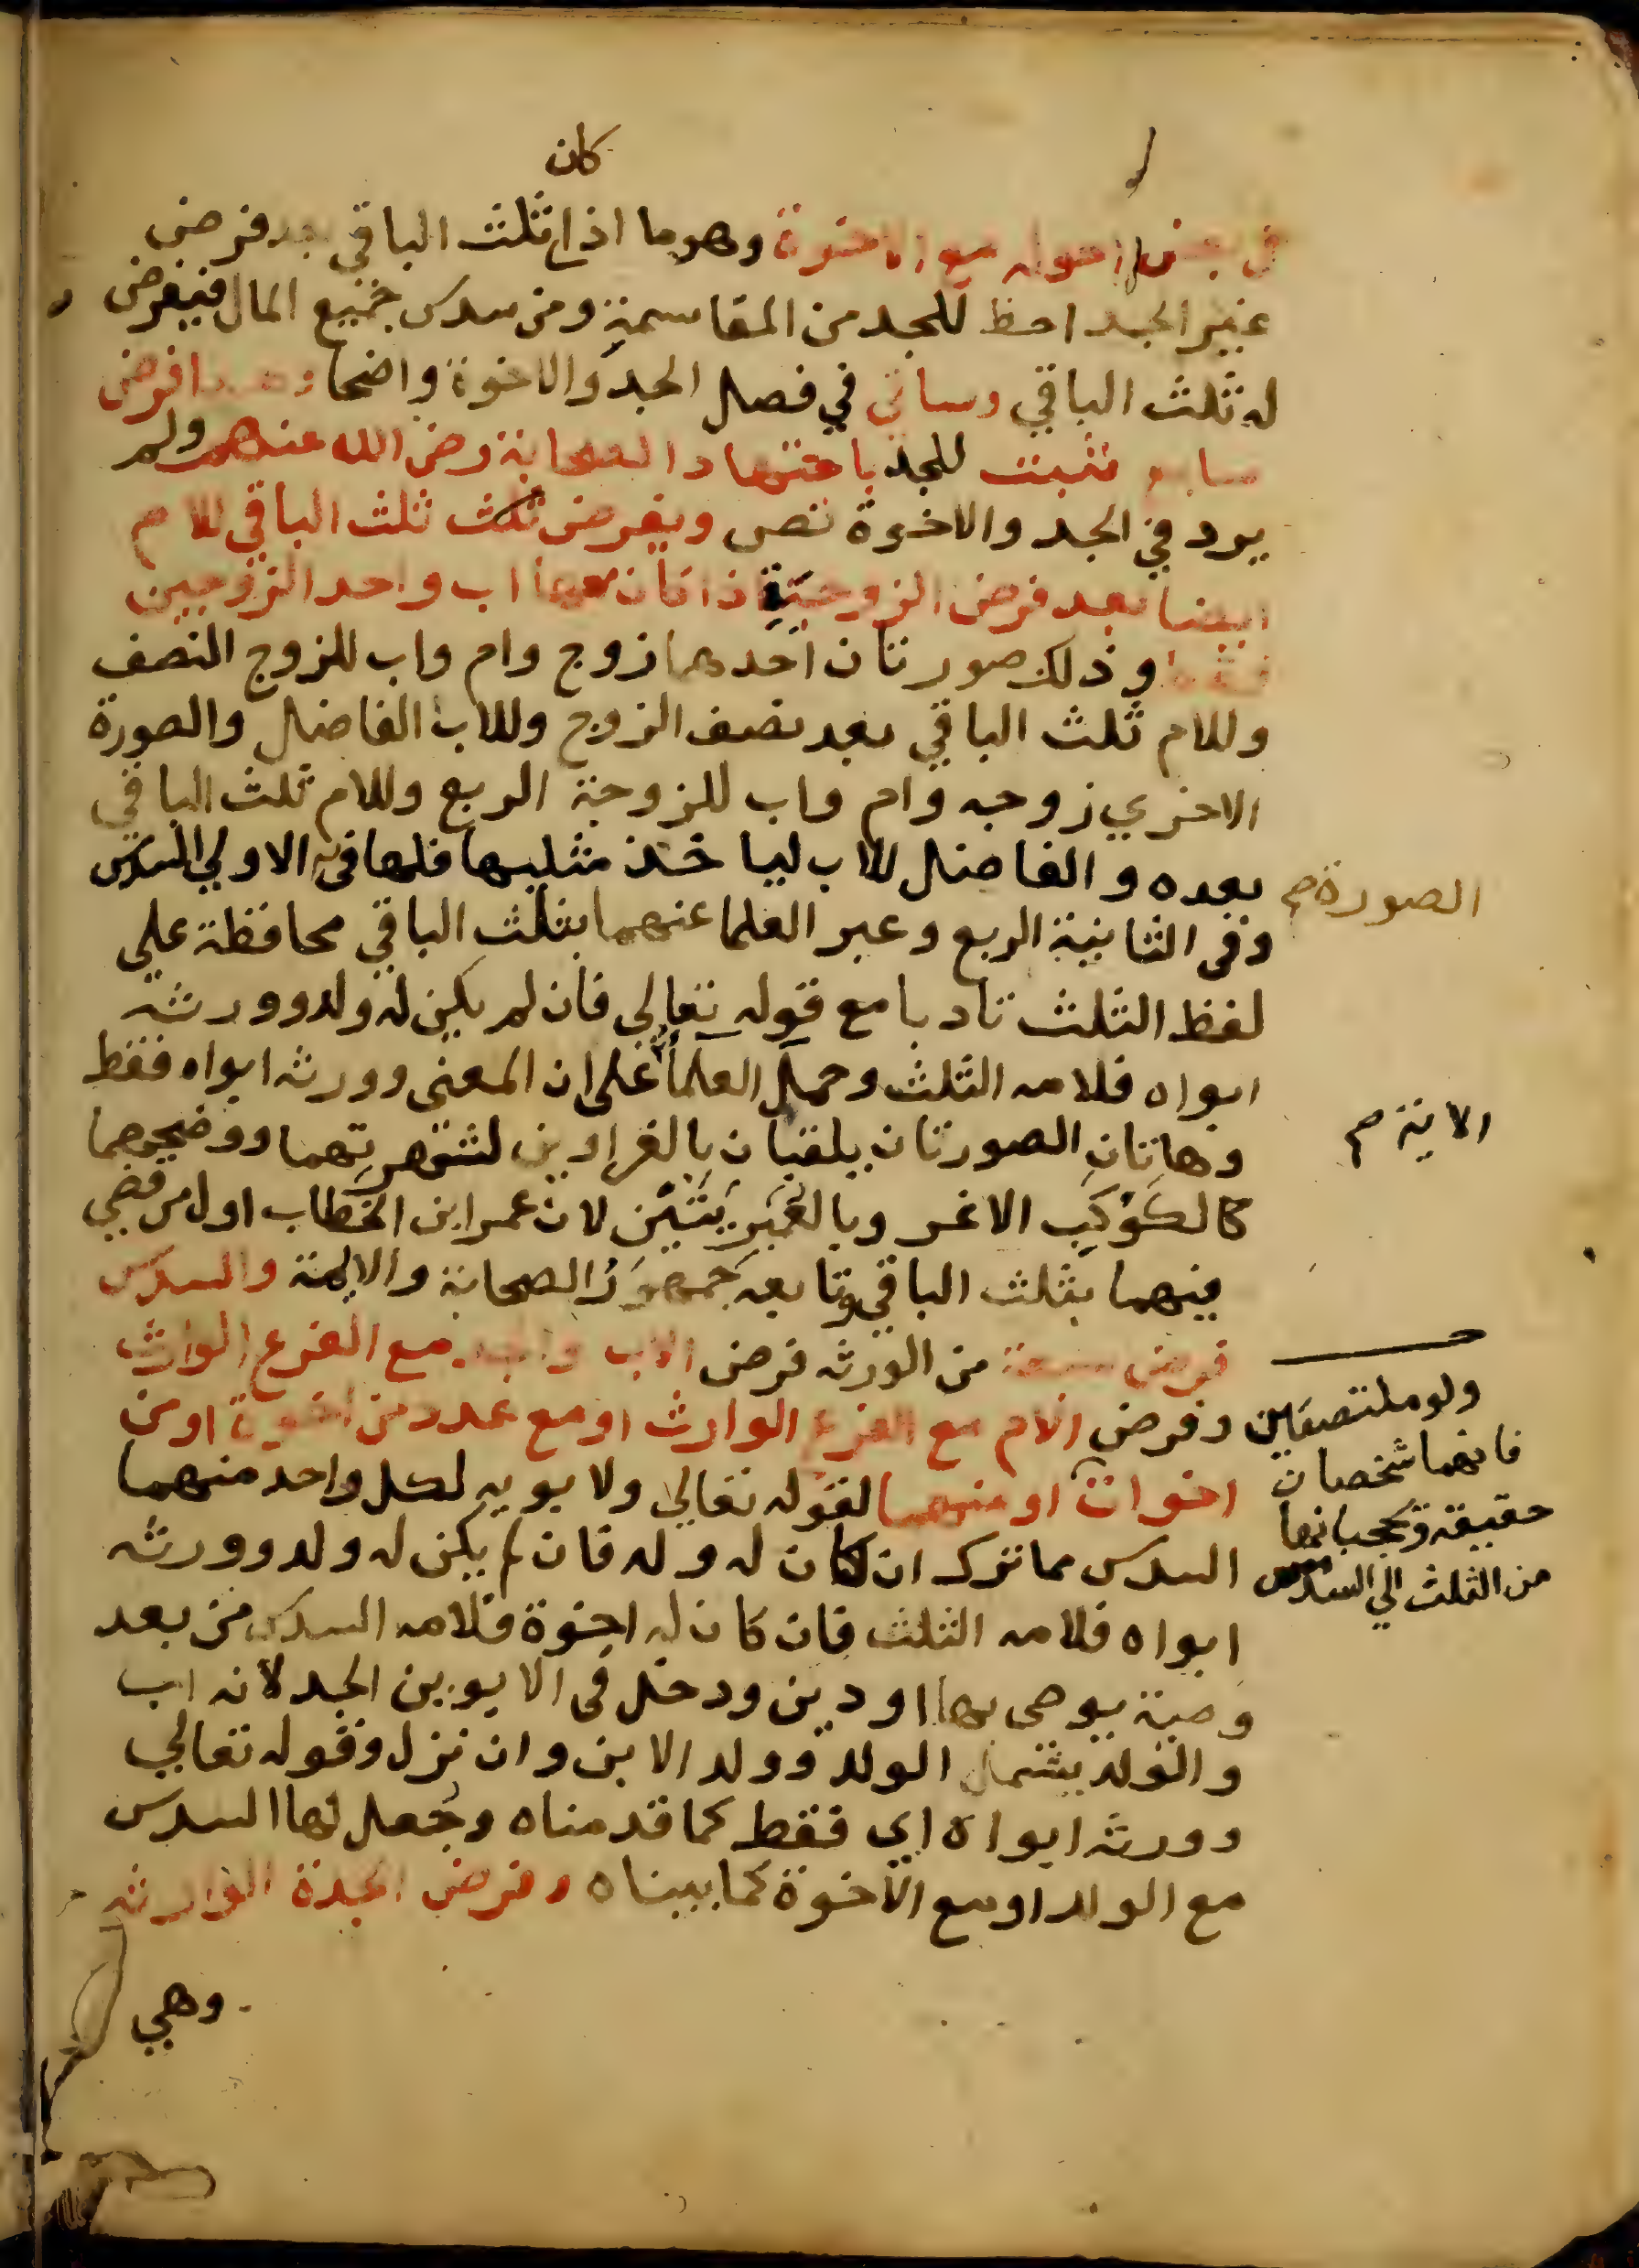 كان
في بعض احواله مع الاخوة وهو ما اذا ثلث الباقي بعد فرض
غير الجد احظ للجد من المقاسمة ومن سدس جميع المال فيفرض
له ثلث الباقي وسياتي في فصل الجد والاخوة واضحا وهذا فرض
سابع ثبت للجد باجتهاد الصحابة رضي الله عنهم ولم
يرد في الجد والاخوة نص ويفرض ثلث ثلث الباقي للام
ايضا بعد فرض الزوجية اذا كان معها اب واحد الزوجين
فقط وذلك صورتان احدهما زوج وام واب للزوج النصف
وللام ثلث الباقي بعد نصف الزوج وللاب الفاضل والصورة
الاخري زوجه وام واب للزوجة الربع وللام ثلث الباقي
بعده والفاضل للاب لياخذ مثليها فلها في الاولي السدس
الصورة صح
وفي الثانية الربع وعبر العلما عنهما بثلث الباقي محافظة علي
لفظ الثلث تادبا مع قوله تعالي فان لم يكن له ولد وورثه
ابواه فلامه الثلث وحمل العلما علي ان المعني وورثه ابواه فقط
الاية صح
وهاتان الصورتان يلقبان بالغراوين لشهرتهما ووضحهما
كالكوكب الاغر وبالعمريتين لان عمر ابن الخطاب اول من قضي
فيهما بثلث الباقي وتابعه جمهور الصحابة والايمة والسدس
فرض سبعة من الورثه فرض الاب والجد مع الفرع الوارث
وفرض الام مع الفرع الوارث او مع عدد من اخوة او من
اخوات او منهما لقوله تعالي ولابويه لكل واحد منهما
السدس مما ترك ان كان له ولد فان لم يكن له ولد وورثه
ابواه فلامه الثلث فان كان له اخوة فلامه السدس من بعد
وصية يوصي بها او دين ودخل في الابوين الجد لانه اب
والولد يشمل الولد وولد الابن وان نزل وقوله تعالي
وورثه ابواه اي فقط كما قدمناه وجعل لها السدس
مع الولد او مع الاخوة كما بيناه وفرض الجدة الوارثه
ولو ملتصقين
فانهما شخصان
حقيقة فيحجبانها
من الثلث الي السدس
وهي